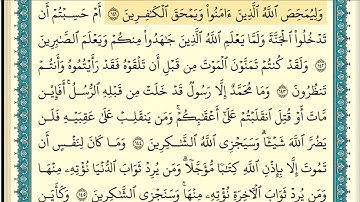 وَلِيُمَحِّصَ ٱللَّهُ ٱلَّذِينَ ءَامَنُوا۟ وَيَمْحَقَ ٱلْكَـٰفِرِينَ ١٤١ أَمْ حَسِبْتُمْ أَن
تَدْخُلُوا۟ ٱلْجَنَّةَ وَلَمَّا يَعْلَمِ ٱللَّهُ ٱلَّذِينَ جَـٰهَدُوا۟ مِنكُمْ وَيَعْلَمَ ٱلصَّـٰبِرِينَ
١٤٢ وَلَقَدْ كُنتُمْ تَمَنَّوْنَ ٱلْمَوْتَ مِن قَبْلِ أَن تَلْقَوْهُ فَقَدْ رَأَيْتُمُوهُ وَأَنتُمْ
تَنظُرُونَ ١٤٣ وَمَا مُحَمَّدٌ إِلَّا رَسُولٌ قَدْ خَلَتْ مِن قَبْلِهِ ٱلرُّسُلُ ۚ أَفَإِي۟ن
مَّاتَ أَوْ قُتِلَ ٱنقَلَبْتُمْ عَلَىٰٓ أَعْقَـٰبِكُمْ ۚ وَمَن يَنقَلِبْ عَلَىٰ عَقِبَيْهِ فَلَن
يَضُرَّ ٱللَّهَ شَيْـًٔا ۗ وَسَيَجْزِى ٱللَّهُ ٱلشَّـٰكِرِينَ ١٤٤ وَمَا كَانَ لِنَفْسٍ أَن
تَمُوتَ إِلَّا بِإِذْنِ ٱللَّهِ كِتَـٰبًا مُّؤَجَّلًا ۗ وَمَن يُرِدْ ثَوَابَ ٱلدُّنْيَا نُؤْتِهِۦ مِنْهَا
وَمَن يُرِدْ ثَوَابَ ٱلْـَٔاخِرَةِ نُؤْتِهِۦ مِنْهَا ۚ وَسَنَجْزِى ٱلشَّـٰكِرِينَ ١٤٥ وَكَأَيِّن